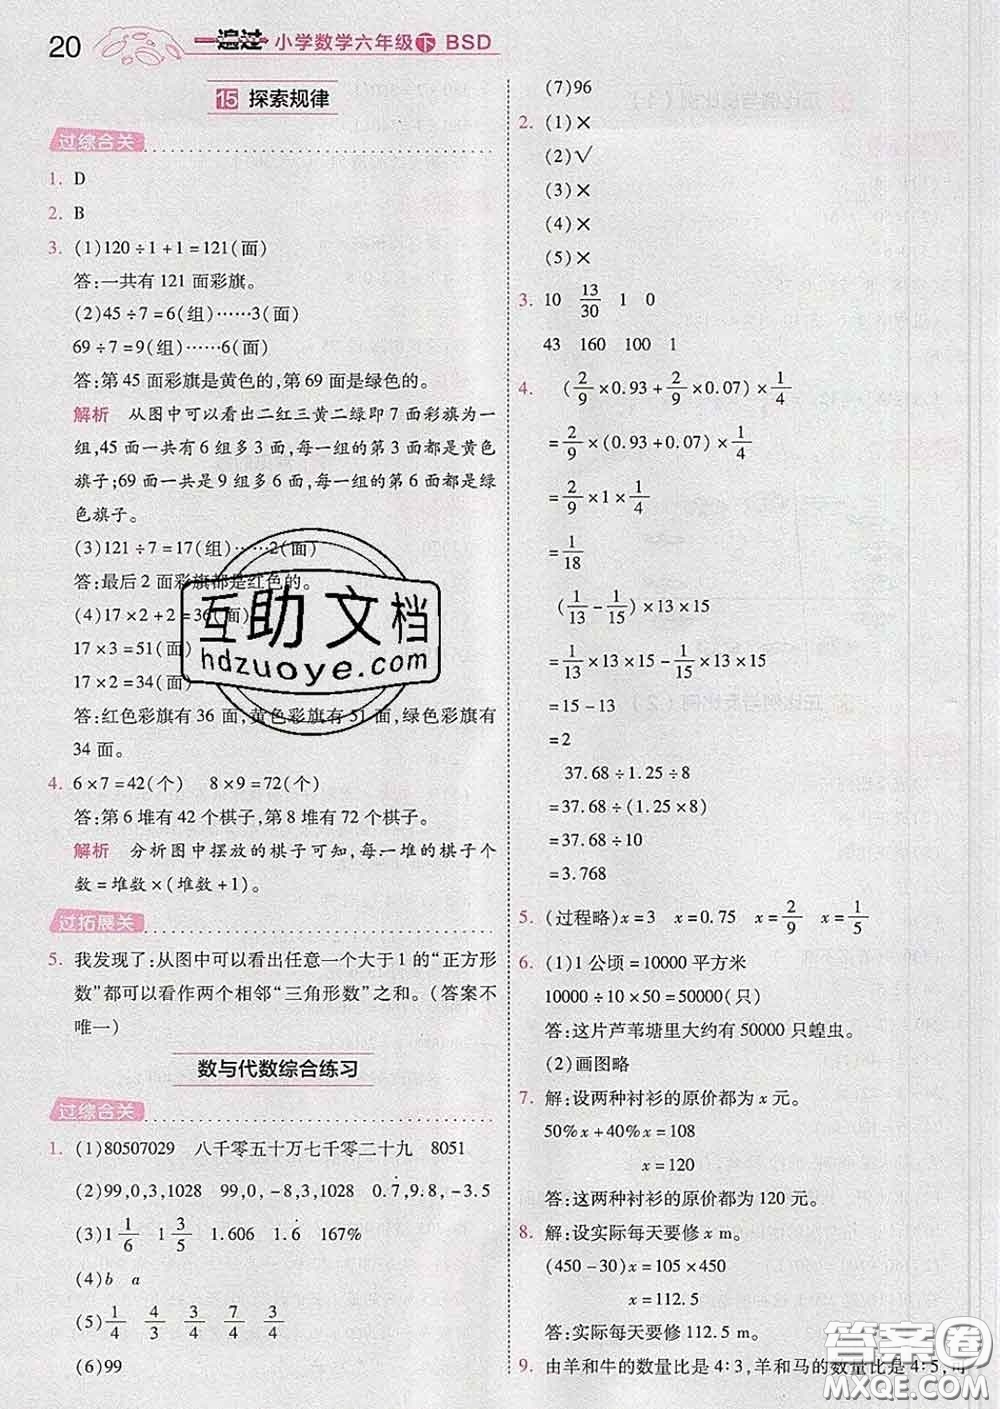 20 一遍过 小学数学六年级下 BSD
15 探索规律
过综合关
1. D
2. B
3. (1)120÷1+1=121(面)
答:一共有 121 面彩旗。
(2)45÷7=6(组)……3(面)
69÷7=9(组)……6(面)
答:第 45 面彩旗是黄色的,第 69 面是绿色的。
解析 从图中可以看出二红三黄二绿即 7 面彩旗为一
组,45 面一共有 6 组多 3 面,每一组的第 3 面都是黄色
旗子;69 面一共是 9 组多 6 面,每一组的第 6 面都是绿
色旗子。
(3)121÷7=17(组)……2(面)
答:最后 2 面彩旗都是红色的。
(4)17×2+2=36(面)
17×3=51(面)
17×2=34(面)
答:红色彩旗有 36 面,黄色彩旗有 51 面,绿色彩旗有
34 面。
4. 6×7=42(个) 8×9=72(个)
答:第 6 堆有 42 个棋子,第 8 堆有 72 个棋子。
解析 分析图中摆放的棋子可知,每一堆的棋子个
数=堆数×(堆数+1)。
过拓展关
5. 我发现了:从图中可以看出任意一个大于 1 的“正方形
数”都可以看作两个相邻“三角形数”之和。(答案不
唯一)
数与代数综合练习
过综合关
1. (1)80507029 八千零五十万七千零二十九 8051
(2)99,0,3,1028 99,0,-8,3,1028 0.7,9.8,-3.5
(3)1 1/6 1 3/5 1.606 1.6̇ 167%
(4)b a
(5)1/4 4/3 3/4 7/4 3/4
(6)99
(7)96
2. (1)×
(2)√
(3)×
(4)×
(5)×
3. 10 13/30 1 0
43 160 100 1
4. (2/9×0.93+2/9×0.07)×1/4
=2/9×(0.93+0.07)×1/4
=2/9×1×1/4
=1/18
(1/13-1/15)×13×15
=1/13×13×15-1/15×13×15
=15-13
=2
37.68÷1.25÷8
=37.68÷(1.25×8)
=37.68÷10
=3.768
5. (过程略)x=3 x=0.75 x=2/9 x=1/5
6. (1)1 公顷=10000 平方米
10000÷10×50=50000(只)
答:这片芦苇塘里大约有 50000 只蝗虫。
(2)画图略
7. 解:设两种衬衫的原价都为 x 元。
50%x+40%x=108
x=120
答:这两种衬衫的原价都为 120 元。
8. 解:设实际每天要修 x m。
(450-30)x=105×450
x=112.5
答:实际每天要修 112.5 m。
9. 由羊和牛的数量比是 4∶3,羊和马的数量比是 4∶5,可
互助文档
hdzuoye.com
答案圈
MXQE.COM